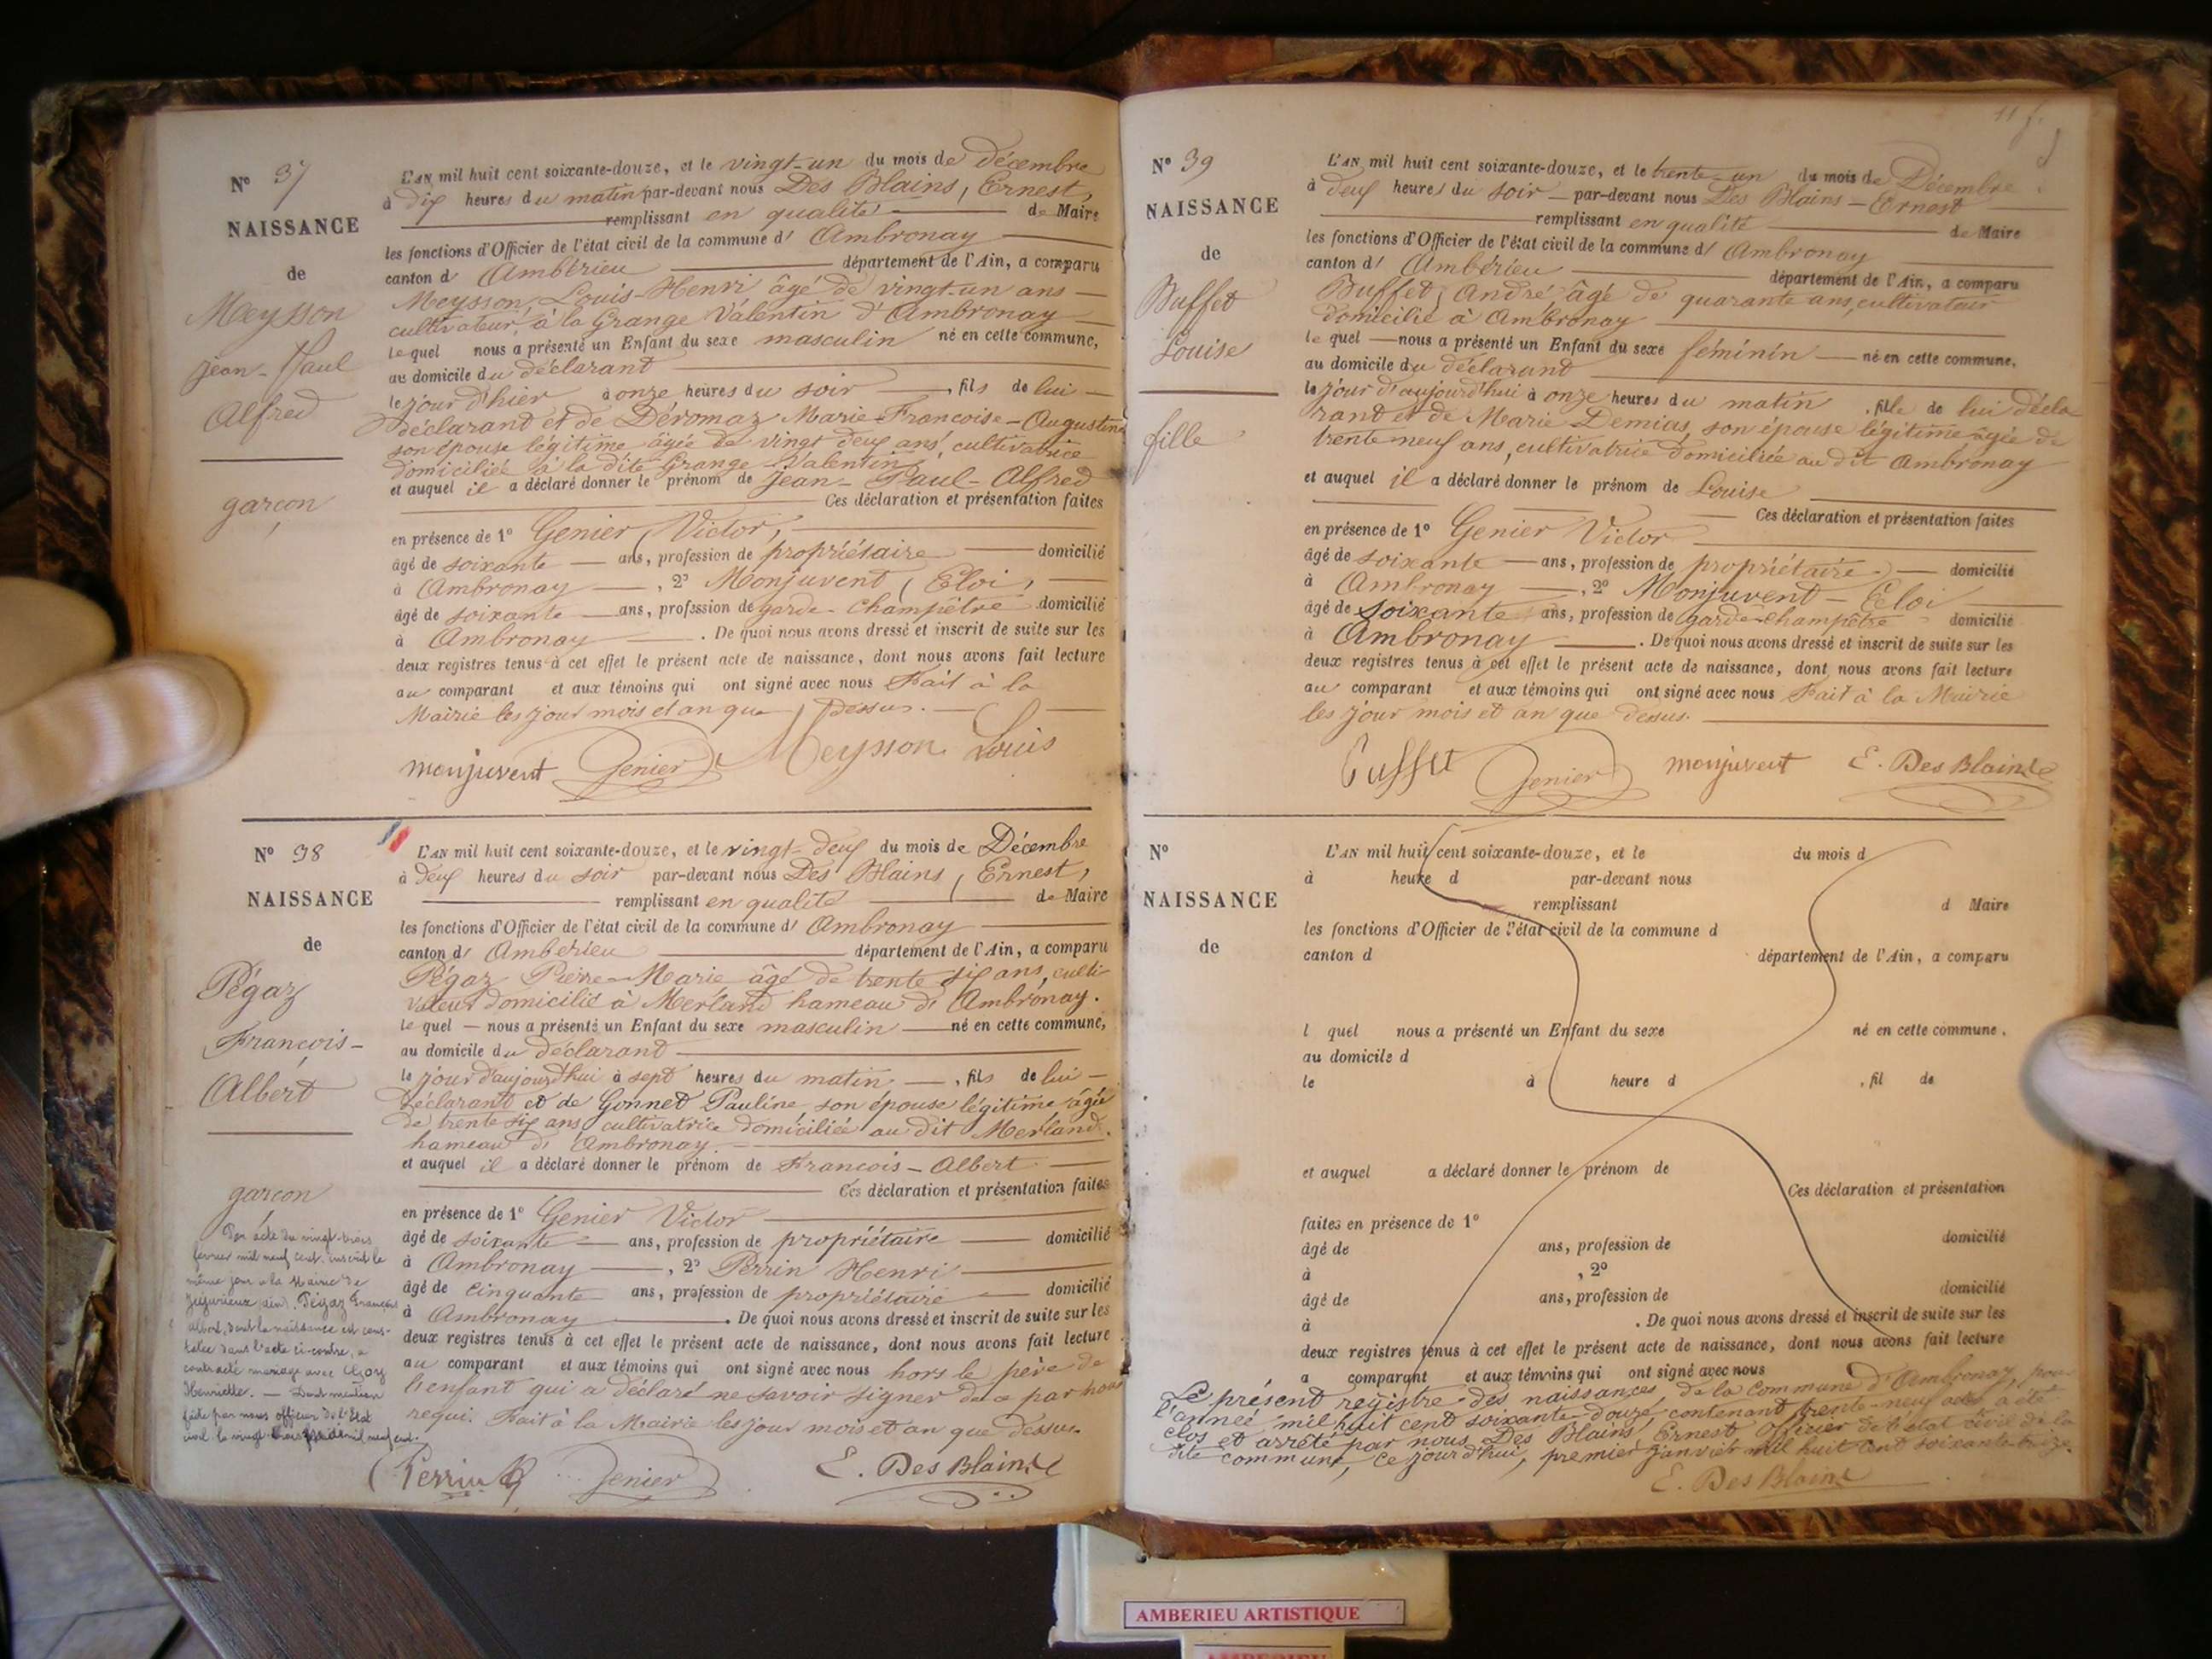 N° 37
NAISSANCE
de
Meysson
Jean-Paul
Alfred
garçon
L'AN mil huit cent soixante-douze, et le vingt-un du mois de Décembre
à dix heures du matin par-devant nous Des Blains, Ernest,
remplissant en qualité de Maire
les fonctions d'Officier de l'état civil de la commune d' Ambronay
canton d' Ambérieu département de l'Ain, a comparu
Meysson, Louis-Henri âgé de vingt-un ans
cultivateur, à la Grange Valentin d'Ambronay
lequel nous a présenté un Enfant du sexe masculin né en cette commune,
au domicile du déclarant
le jour d'hier à onze heures du soir, fils de lui
déclarant et de Déromaz Marie-Françoise-Augustine
son épouse légitime âgée de vingt deux ans, cultivatrice
domiciliée à la dite Grange Valentin
et auquel il a déclaré donner le prénom de Jean-Paul-Alfred
Ces déclaration et présentation faites
en présence de 1° Genier, Victor,
âgé de soixante ans, profession de propriétaire domicilié
à Ambronay, 2° Monjuvent, Eloi,
âgé de soixante ans, profession de garde-champêtre domicilié
à Ambronay. De quoi nous avons dressé et inscrit de suite sur les
deux registres tenus à cet effet le présent acte de naissance, dont nous avons fait lecture
au comparant et aux témoins qui ont signé avec nous Fait à la
Mairie les jour mois et an que Dessus.
monjuvent Genier Meysson Louis
N° 38
NAISSANCE
de
Pégaz
François-
Albert
garçon
Par acte du vingt-trois
février mil neuf cent, inscrit le
même jour à la Mairie de
Jujurieux (Ain), Pégaz François
Albert, dont la naissance est cons-
tatée dans l'acte ci-contre, a
contracté mariage avec
Henriette. — Dont mention
faite par nous officier de l'Etat
civil le vingt-trois mil neuf cent.
L'AN mil huit cent soixante-douze, et le vingt-deux du mois de Décembre
à deux heures du soir par-devant nous Des Blains, Ernest,
remplissant en qualité de Maire
les fonctions d'Officier de l'état civil de la commune d' Ambronay
canton d' Ambérieu département de l'Ain, a comparu
Pégaz Pierre-Marie âgé de trente six ans, culti-
vateur domicilié à Merland hameau d'Ambronay.
lequel nous a présenté un Enfant du sexe masculin né en cette commune,
au domicile du déclarant
le jour d'aujourd'hui à sept heures du matin, fils de lui
déclarant et de Gonnet Pauline, son épouse légitime âgée
de trente six ans cultivatrice domiciliée au dit Merland.
hameau d'Ambronay.
et auquel il a déclaré donner le prénom de François-Albert
Ces déclaration et présentation faites
en présence de 1° Genier Victor
âgé de soixante ans, profession de propriétaire domicilié
à Ambronay, 2° Perrin Henri
âgé de cinquante ans, profession de propriétaire domicilié
à Ambronay. De quoi nous avons dressé et inscrit de suite sur les
deux registres tenus à cet effet le présent acte de naissance, dont nous avons fait lecture
au comparant et aux témoins qui ont signé avec nous hors le père de
l'enfant qui a déclaré ne savoir signer de ce par nous
requi. Fait à la Mairie les jour mois et an que dessus.
Perrin Genier E. Des Blains
N° 39
NAISSANCE
de
Buffet
Louise
fille
L'AN mil huit cent soixante-douze, et le trente-un du mois de Décembre
à deux heures du soir par-devant nous Des Blains-Ernest
remplissant en qualité de Maire
les fonctions d'Officier de l'état civil de la commune d' Ambronay
canton d' Ambérieu département de l'Ain, a comparu
Buffet, André âgé de quarante ans, cultivateur
domicilié à Ambronay
lequel nous a présenté un Enfant du sexe féminin né en cette commune.
au domicile du déclarant
le jour d'aujourd'hui à onze heures du matin, fille de lui décla
rant et de Marie Demias, son épouse légitime âgée de
trente neuf ans, cultivatrice domiciliée au dit Ambronay
et auquel il a déclaré donner le prénom de Louise
Ces déclaration et présentation faites
en présence de 1° Genier Victor
âgé de soixante ans, profession de propriétaire domicilié
à Ambronay, 2° Monjuvent-Eloi
âgé de soixante ans, profession de garde-champêtre domicilié
à Ambronay. De quoi nous avons dressé et inscrit de suite sur les
deux registres tenus à cet effet le présent acte de naissance, dont nous avons fait lecture
au comparant et aux témoins qui ont signé avec nous Fait à la Mairie
les jour mois et an que dessus.
Buffet Genier monjuvent E. Des Blains
N°
NAISSANCE
de
L'AN mil huit cent soixante-douze, et le du mois d
à heure d par-devant nous
remplissant d Maire
les fonctions d'Officier de l'état civil de la commune d
canton d département de l'Ain, a comparu
l quel nous a présenté un Enfant du sexe né en cette commune.
au domicile d
le à heure d , fil de
et auquel a déclaré donner le prénom de
Ces déclaration et présentation
faites en présence de 1°
âgé de ans, profession de domicilié
à , 2°
âgé de ans, profession de domicilié
à . De quoi nous avons dressé et inscrit de suite sur les
deux registres tenus à cet effet le présent acte de naissance, dont nous avons fait lecture
a comparant et aux témoins qui ont signé avec nous
Le présent registre des naissances de la Commune d'Ambronay, pour
l'année mil huit cent soixante-douze, contenant trente-neuf actes a été
clos et arrêté par nous Des Blains, Ernest Officier de l'état civil de la
dite commune, ce jourd'hui, premier janvier mil huit cent soixante-treize.
E. Des Blains
AMBERIEU ARTISTIQUE
AMBERIEU